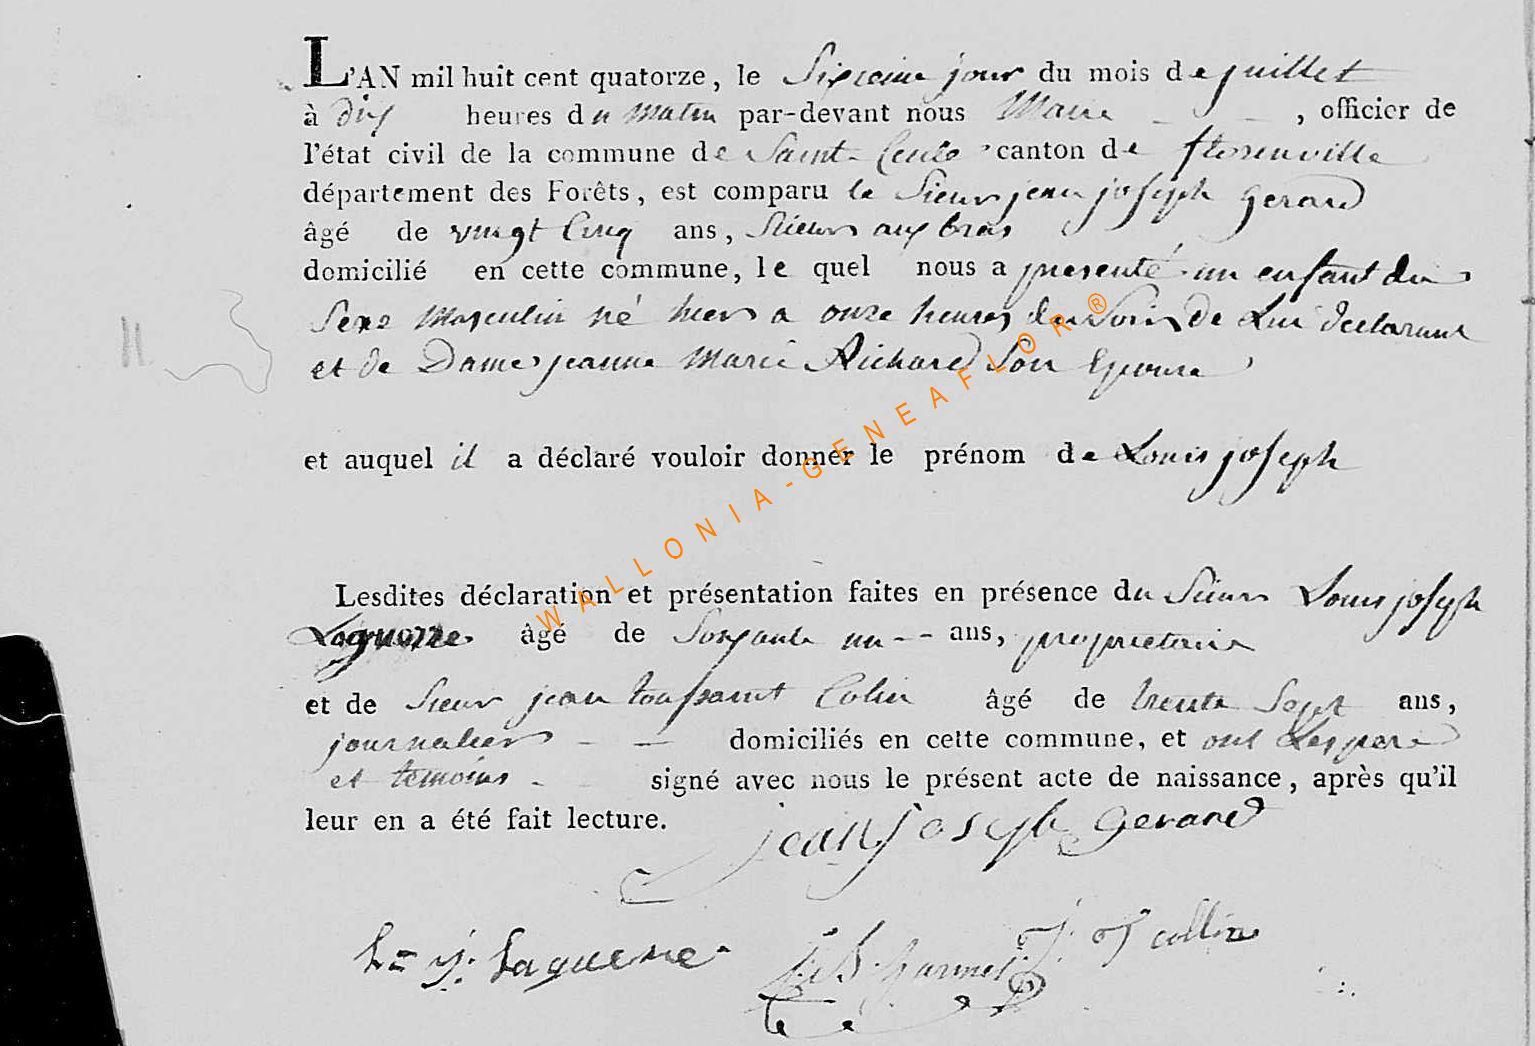 L'AN mil huit cent quatorze, le Sixieme jour du mois de juillet
à dix heures du Matin par-devant nous Maire - - , officier de
l'état civil de la commune de Saint- Cecile canton de florenville
département des Forêts, est comparu le Sieur jean joseph gerard
âgé de vingt Cinq ans, Scieur aux bras
domicilié en cette commune, le quel nous a presenté un enfant du
Sexe Masculin né hier a onze heures du Soir de Lui declarant
et de Dame jeanne Marie Richard Son Epouse
et auquel il a déclaré vouloir donner le prénom de Louis joseph
WALLONIA-GENEAFLOR®
Lesdites déclaration et présentation faites en présence du Sieur Louis joseph
Laguerre âgé de Soixante un -- ans, proprietaire
et de Sieur jean toussaint Colin âgé de trente Sept ans,
journalier - - domiciliés en cette commune, et ont Les pere
et temoins - signé avec nous le présent acte de naissance, après qu'il
leur en a été fait lecture. jean joseph gerard
L= j: Laguerre
j t collin